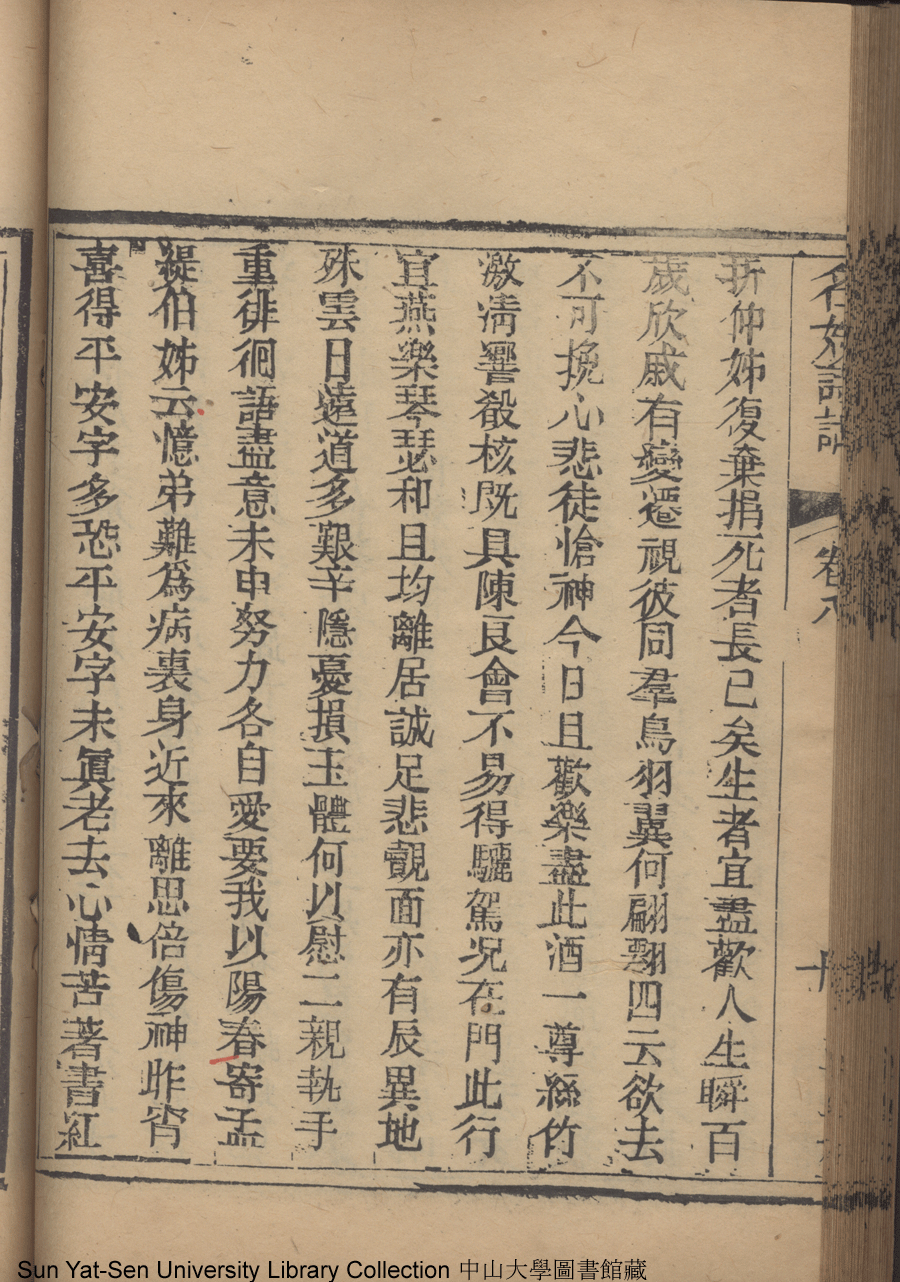 名媛詩話 卷八
折仲姊復棄捐死者長已矣生者宜盡歡人生瞬百
歲欣戚有變遷視彼同羣鳥羽翼何翩翾四云欲去
不可挽心悲徒愴神今日且歡樂盡此酒一尊絲竹
激清響殽核既具陳良會不易得驪駕况在門此行
宜燕樂琴瑟和且均離居誠足悲覿面亦有辰異地
殊雲日遠道多艱辛隱憂損玉體何以慰二親執手
重徘徊語盡意未申努力各自愛要我以陽春寄孟
緹伯姊云憶弟難爲病裏身近來離思倍傷神昨宵
喜得平安字多恐平安字未眞老去心情苦著書紅
Sun Yat-Sen University Library Collection 中山大學圖書館藏